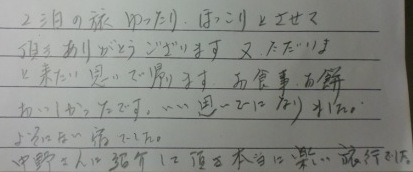 2泊の旅 ゆったり、ほっこり とさせて
頂き ありがとうございます 又、ただいま
と来たい思いで帰ります。お食事、お餅
おいしかったです。いい思いでになりました。
よそにない宿でした。
中野さんに紹介して頂き本当に楽しい旅行でした。